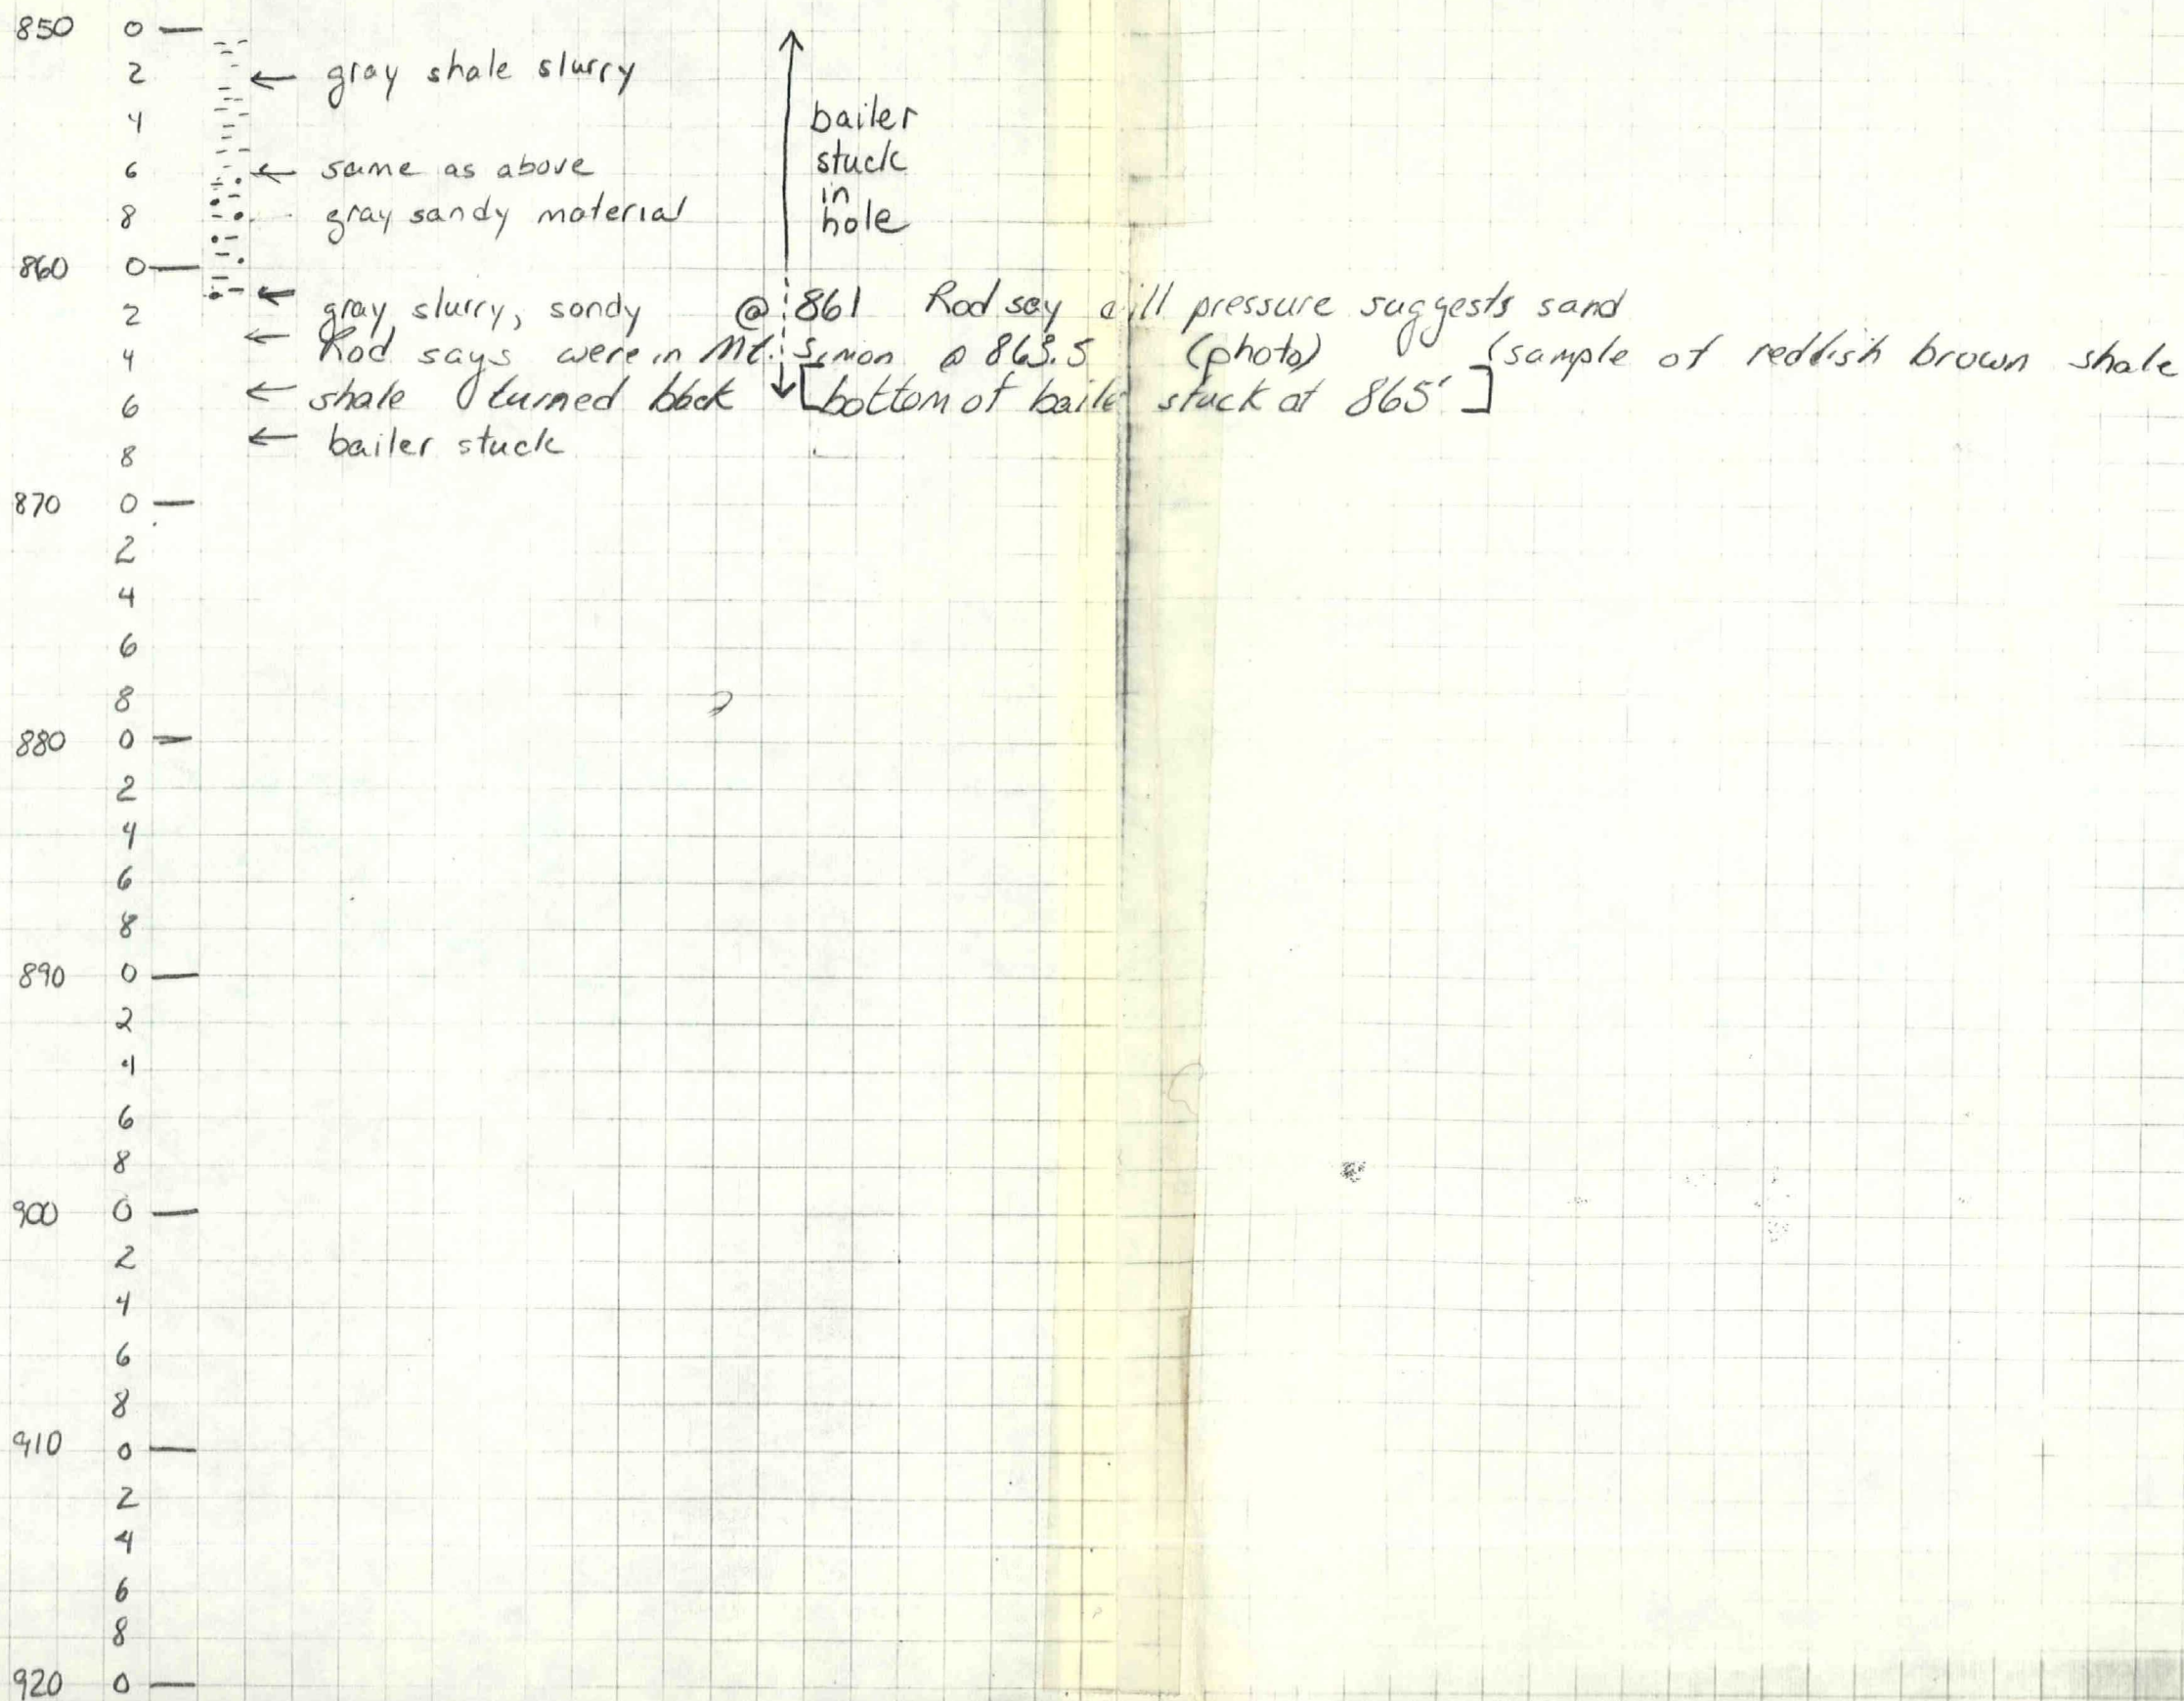 850 0
2 ← gray shale slurry
4
6 ← same as above
8 gray sandy material
bailer
stuck
in
hole
860 0
← gray slurry, sandy @ 861 Rod say drill pressure suggests sand
2
← Rod says were in Mt. Simon @ 863.5 (photo) (sample of reddish brown shale
4
← shale turned black [bottom of bailer stuck at 865' ]
6
← bailer stuck
8
870 0
2
4
6
8
880 0
2
4
6
8
890 0
2
4
6
8
900 0
2
4
6
8
910 0
2
4
6
8
920 0